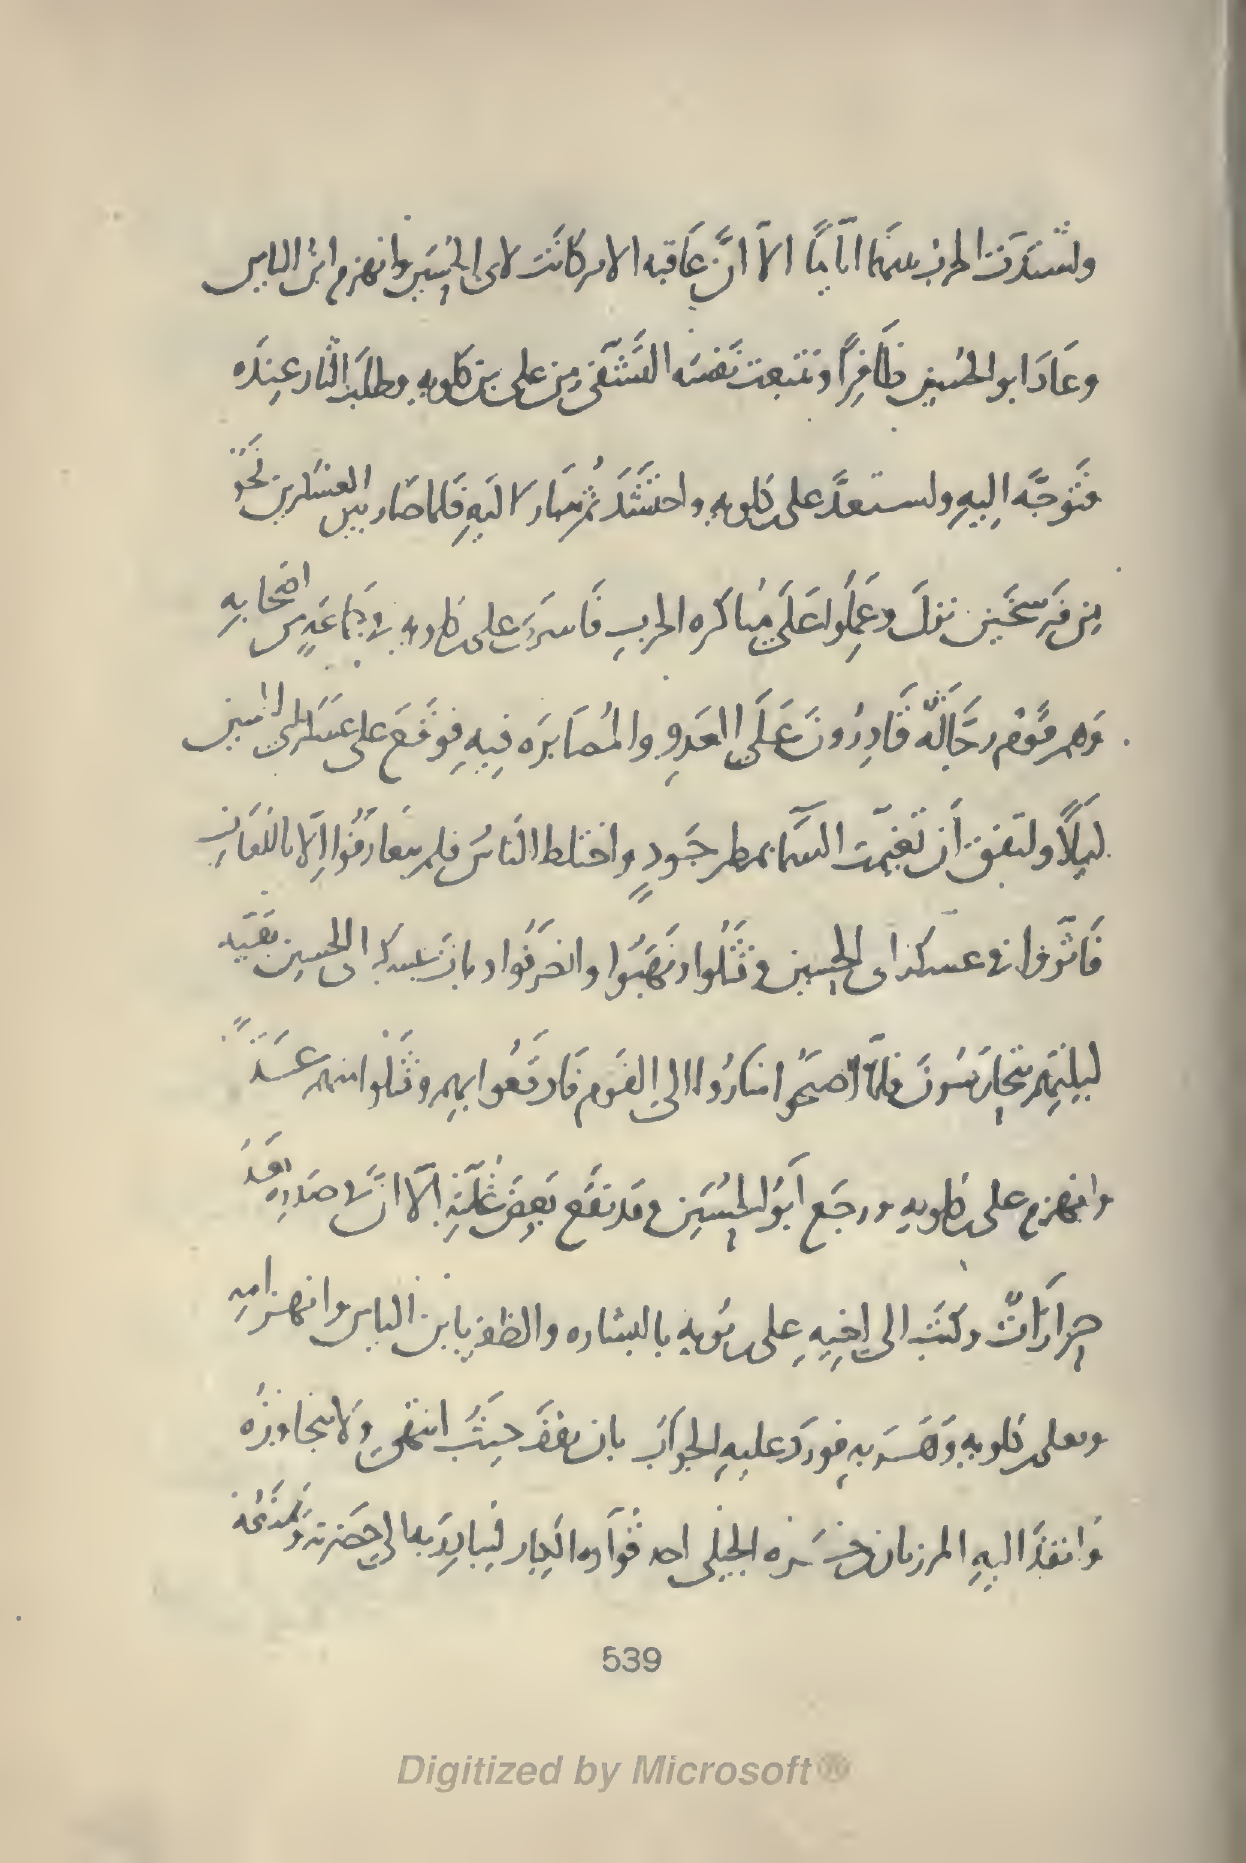 واشتدت الحرب بينهما أيّامًا الّا انَّ عَاقبه الامر كانَت لابى الحسَين وانهزم ابن الياس
وعَادَ ابو الحسُين ظَافِرًا وتتبعت نَفسَه التَّشَّفى مِن على بن كلويه وطلَبَ الثار عِندَه
فتَوجَّه اليهِ واستعدَّ على كلويه واحتشَدَ ثم سَار الَيهِ فَلما صَار بين العسَكَرين نَحوٌ
مِن فَرسَخَين نزلَ وعَمِلُوا عَلَى مُباكره الحربِ فَاسرَى على كلويه فى جَماعَةٍ من اصَحابهِ
وَهم قَوْم رجَّالَّه قَادِرُونَ عَلَى العَدوِ والمُصَابرَه فِيهِ فوَقَعَ على عسَكر ابى الحسين
ليَلًا واتفق أن تَغَيَّمت السّمَا بمطر جَودٍ واختلط النَاسُ فلم يتعَارفُوا الّا باللغَاتِ
فَاثّروا فى عسكر ابى الحسين وقتَلُوا ونَهَبُوا وانصَرَفُوا وباتَ عسكر ابى الحسين بقَيه
ليلتِهَم يتحارَسُونَ فلمَّا أصبَحُوا سَارُوا الى القَوم فَاوقَعُوا بهِم وقتَلُوا منهم عَدَدًا
وانهزم على كلويه ورجَع أبُو الحُسَين وقد نقَع بَعضَ غُلّتِهِ الّا انّ فى صَدرِه بَعْدُ
حزازَاتٌ وكتَبَ الى اخِيهِ على بُويه بالبشاره والظفر بابن الياس وانهزامهِ
وبعلى كلويه وهَرَبهِ فورَدَ عليهِ الجوَابُ بان يقفَ حيَثُ انتهَى ولَا يتجاوزُه
وَانفذَ اليهِ المرزبان بن خسَره الجيلى احد قُوّاده الكِبار ليُبادِرَ به الى حضَرتهِ وَيَمنَعُهُ
539
Digitized by Microsoft®